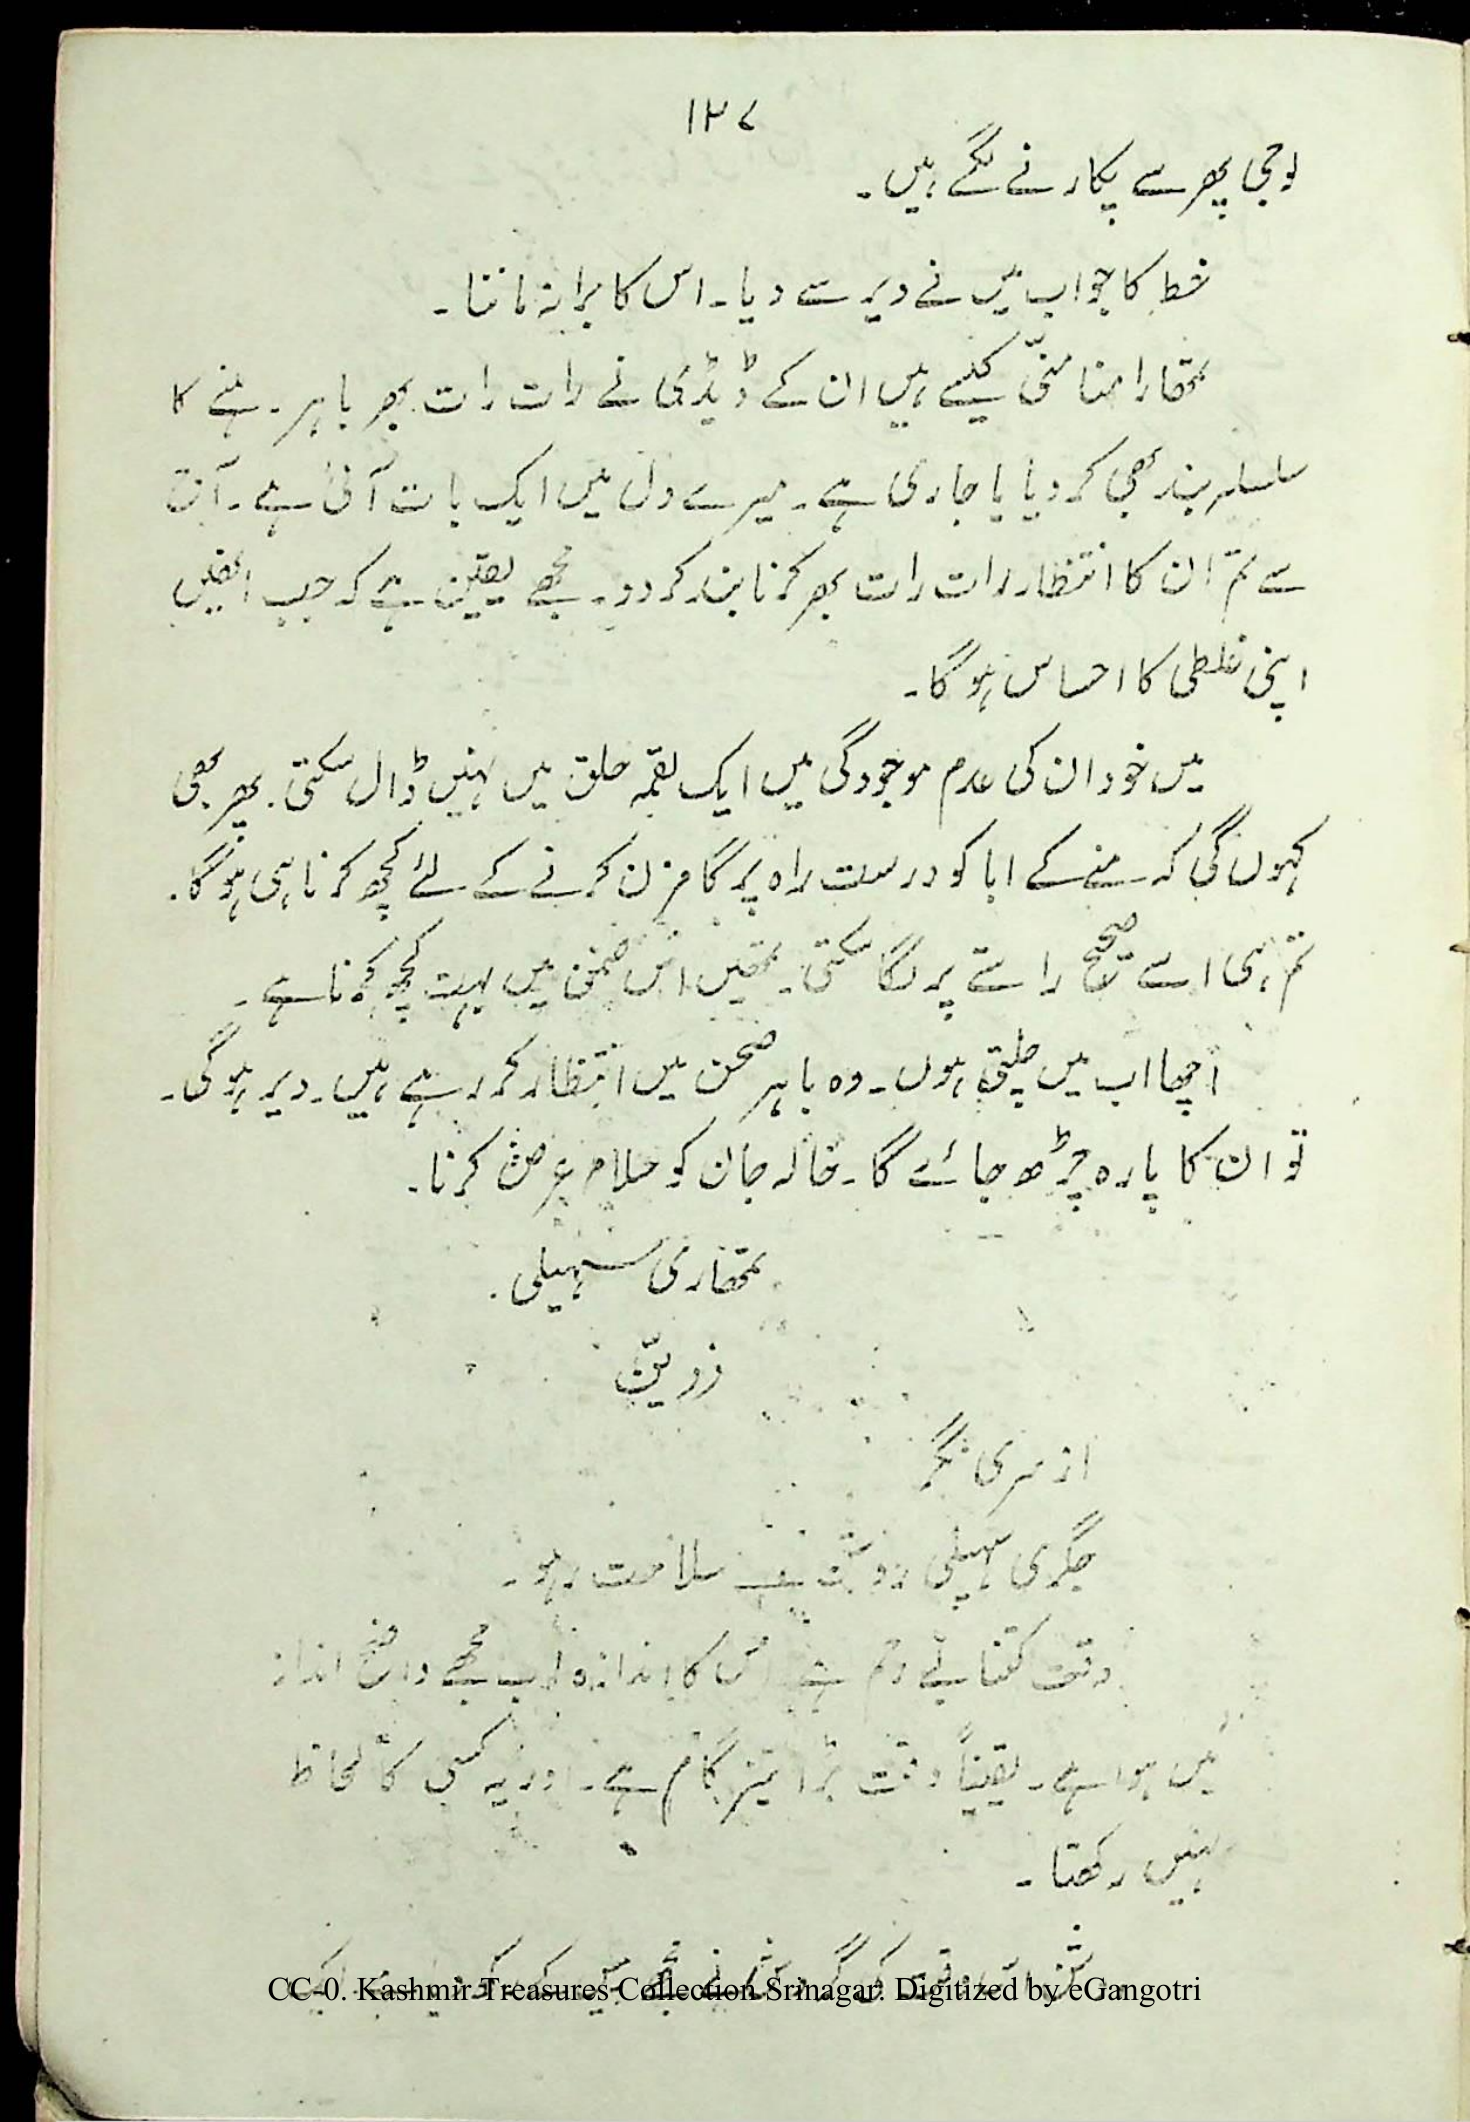 ۱۲۷
لوجی پھر سے پکارنے لگے ہیں۔
خط کا جواب میں نے دیر سے دیا۔ اس کا برا نہ ماننا۔
تمھارا منا منّی کیسے ہیں ان کے ڈیڈی نے رات رات بھر باہر رہنے کا
سلسلہ بند بھی کر دیا یا جاری ہے۔ میرے دل میں ایک بات آئی ہے۔ آج
سے تم ان کا انتظار رات رات بھر کرنا بند کر دو۔ مجھے یقین ہے کہ جب انھیں
اپنی غلطی کا احساس ہو گا۔
میں خود ان کی عدم موجودگی میں ایک لقمہ حلق میں نہیں ڈال سکتی۔ پھر بھی
کہوں گی کہ منے کے ابا کو درست راہ پر گامزن کرنے کے لئے کچھ کرنا ہی ہو گا۔
تم ہی اسے صحیح راستے پر لگا سکتی۔ تمھیں اس ضمن میں بہت کچھ کرنا ہے۔
اچھا اب میں چلتی ہوں۔ وہ باہر صحن میں انتظار کر رہے ہیں۔ دیر ہو گی۔
تو ان کا پارہ چڑھ جائے گا۔ خالہ جان کو سلام عرض کرنا۔
تمھاری سہیلی۔
زوبی
از سری نگر
جگری سہیلی سلامت رہو۔
وقت کتنا بے رحم ہے اس کا اندازہ اب مجھے واضح انداز
میں ہوا ہے۔ یقیناً وقت بڑا تیز گام ہے۔ اور یہ کسی کا لحاظ
نہیں رکھتا۔
وقت کی گردش نے مجھے
CC-0. Kashmir Treasures Collection Srinagar. Digitized by eGangotri